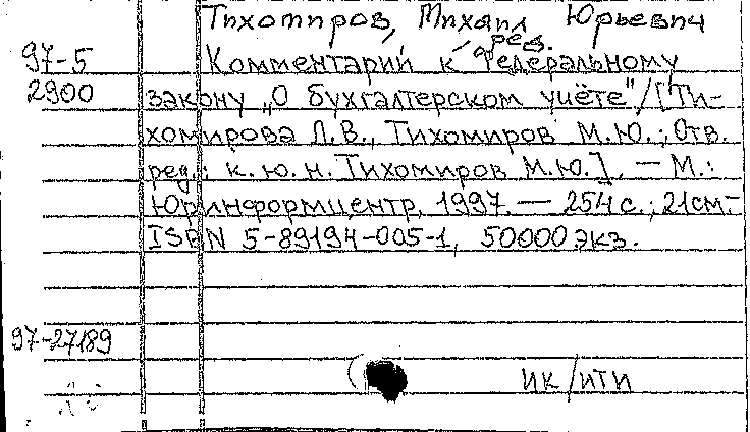 Тихомиров, Михаил Юрьевич
ред.
97-5 Комментарий к Федеральному
2900 закону „О бухгалтерском учёте"/[Ти-
хомирова Л.В., Тихомиров М.Ю.; Отв.
ред.: к.ю.н. Тихомиров М.Ю.]. — М.:
Юринформцентр, 1997. — 254 с.; 21см.-
ISBN 5-89194-005-1, 50000 экз.
97-27189
ИК/ИТИ